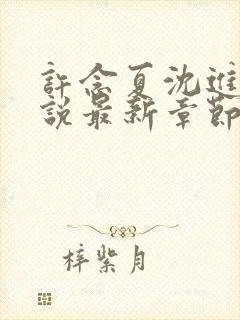 許念夏沈進
說最新章節
梓紫月